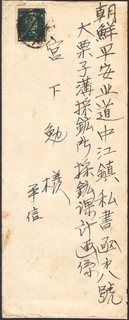 朝鮮平安北道中江鎮私書函第八號
大栗子溝採鉱所採鉱課計画係
宮下勉様
平信